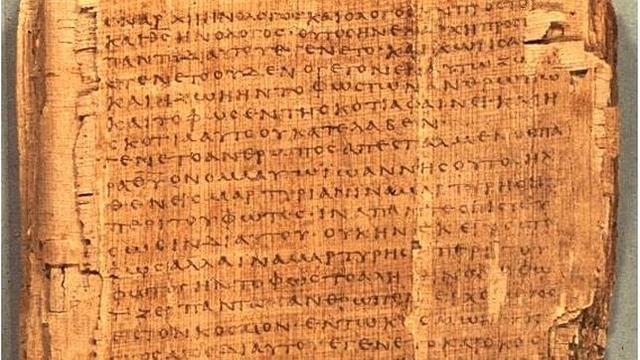 ΕΝ ΑΡΧΗ ΗΝ Ο ΛΟΓΟΣ ΚΑΙ Ο ΛΟΓΟΣ
ΚΑΙ ΘΣ ΗΝ Ο ΛΟΓΟΣ · ΟΥΤΟΣ ΗΝ
ΠΑΝΤΑ ΔΙ ΑΥΤΟΥ ΕΓΕΝΕΤΟ · ΚΑΙ ΧΩΡΙΣ
ΕΓΕΝΕΤΟ ΟΥΔΕΝ Ο ΓΕΓΟΝΕΝ
ΚΑΙ Η ΖΩΗ ΗΝ ΤΟ ΦΩΣ ΤΩΝ ΑΝΘΡΩΠΩ
ΚΑΙ ΤΟ ΦΩΣ ΕΝ ΤΗ ΣΚΟΤΙΑ ΦΑΙΝΕΙ · ΚΑΙ Η
ΣΚΟΤΙΑ ΑΥΤΟ ΟΥ ΚΑΤΕΛΑΒΕΝ ·
ΕΓΕΝΕΤΟ ΑΝΘΡΩΠΟΣ ΑΠΕΣΤΑΛΜΕΝΟΣ ΠΑ
ΡΑ ΘΥ ΟΝΟΜΑ ΑΥΤΩ ΙΩΑΝΝΗΣ ΟΥΤΟΣ ΗΛ
ΘΕΝ ΕΙΣ ΜΑΡΤΥΡΙΑΝ ΙΝΑ ΜΑΡΤΥΡΗΣΗ
ΠΕΡΙ ΤΟΥ ΦΩΤΟΣ · ΙΝΑ ΠΑΝΤΕΣ ΠΙΣΤΕΥ
ΣΩΣΙΝ ΔΙ ΑΥΤΟΥ · ΟΥΚ ΗΝ ΕΚΕΙΝΟΣ ΤΟ
ΦΩΣ ΑΛΛΑ ΙΝΑ ΜΑΡΤΥΡΗΣΗ ΠΕΡΙ ΤΟΥ
ΦΩΤΟΣ ΗΝ ΤΟ ΦΩΣ ΤΟ ΑΛΗΘΙΝΟΝ Ο ΦΩ
ΤΙΖΕΙ ΠΑΝΤΑ ΑΝΘΡΩΠΟΝ ΕΡΧΟΜΕΝΟΝ
ΕΙΣ ΤΟΝ ΚΟΣΜΟΝ · ΕΝ ΤΩ ΚΟΣΜΩ ΗΝ
ΚΟΣΜΟΣ ΔΙ ΑΥΤΟΥ ΕΓΕΝΕΤΟ ΚΑΙ Ο ΚΟΣ